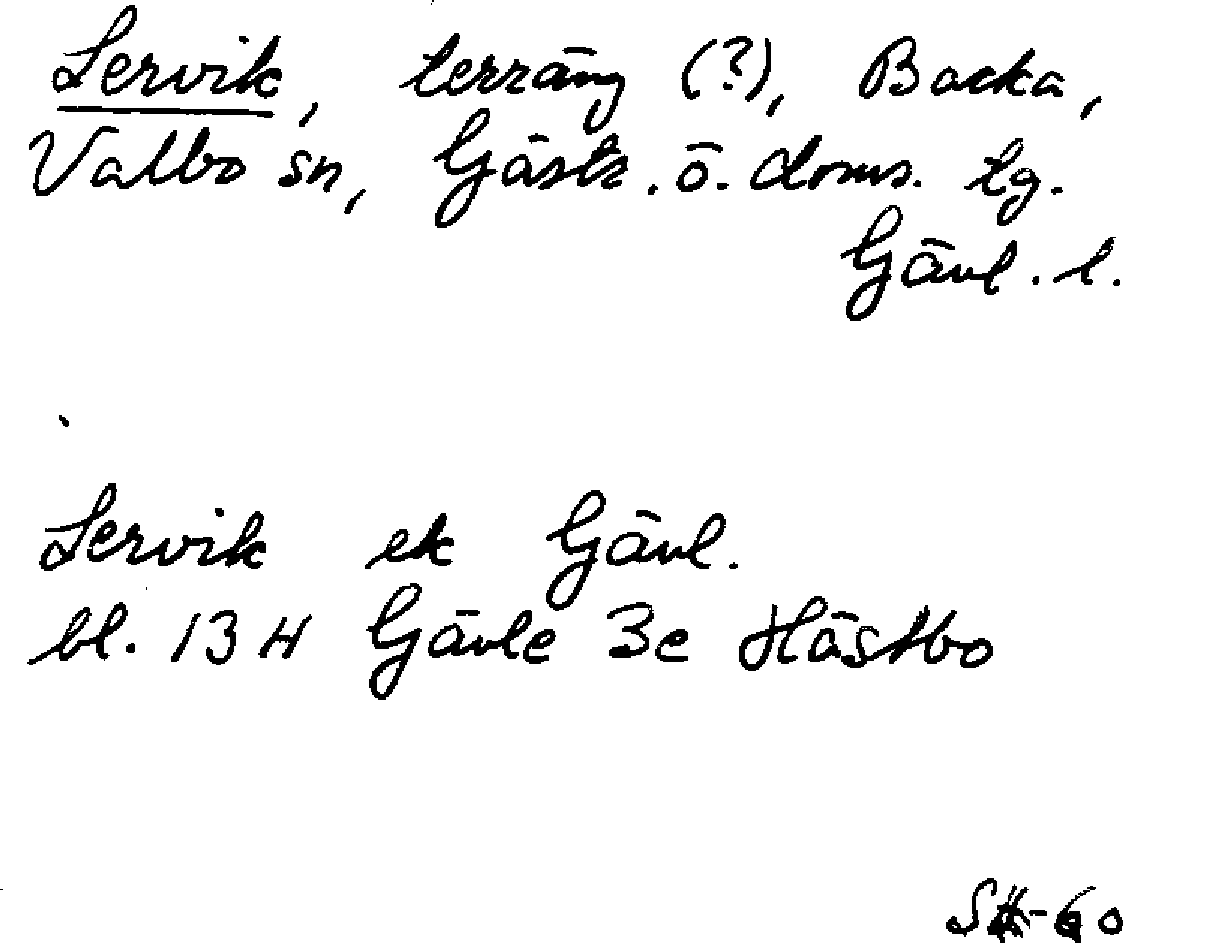 Lervik, terräng (?), Backa,
Valbo sn, Gästr. ö. doms. tg.
Gävl. l.
Lervik ek Gävl.
bl. 13 H Gävle 3e Hästbo